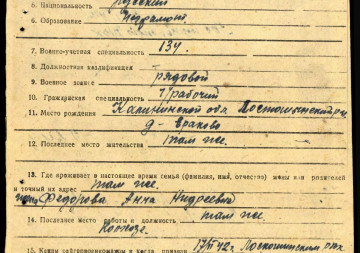 6. Национальность русский
6. Образование
7. Военно-учетная специальность 134
8. Должностная квалификация
9. Военное звание рядовой
10. Гражданская специальность ч/рабочий
11. Место рождения Калининской обл.
д- Ераково
12. Последнее место жительства там же.
13. Где проживает в настоящее время семья (фамилия, имя, отчество) жены или родителей
и точный их адрес там же.
Федорова Анна Андреевна
14. Последнее место работы и должность там же.
Колхозе.
15. Каким райгорвоенкоматом и когда призван